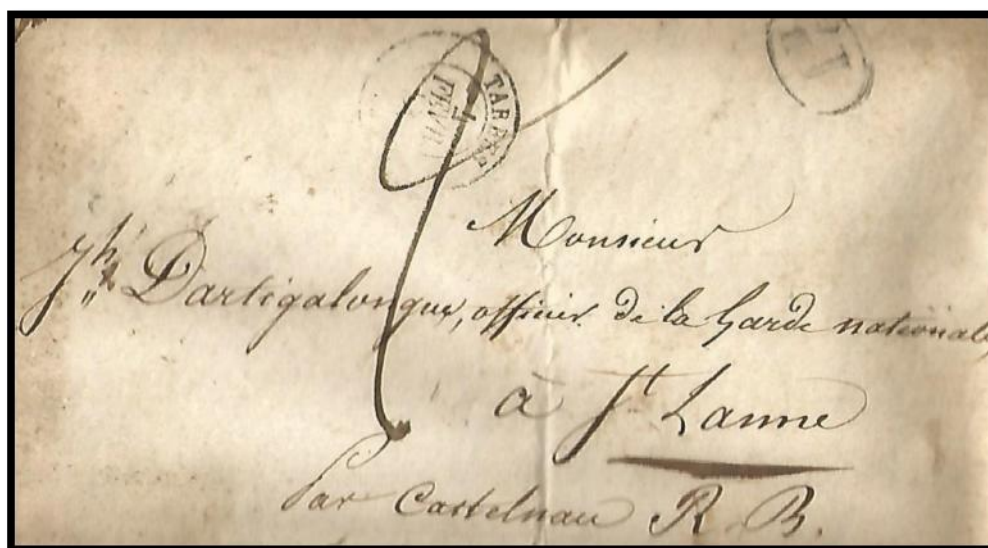 TARBES
FEVR
Monsieur
Jh Dartigalongue, officier de la Garde nationale
à St Lanne
Par Castelnau R. B.